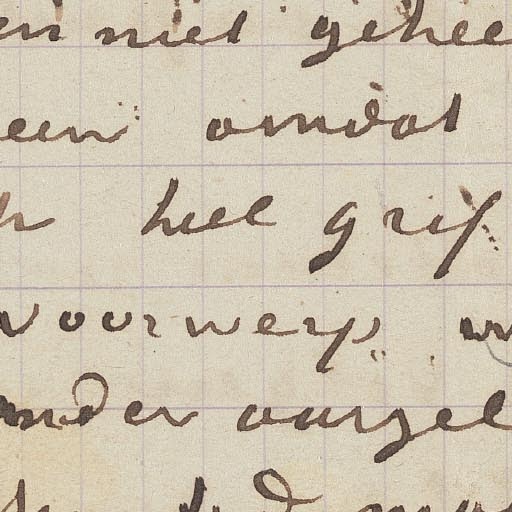 en niet gehee
een omdat
heel grij
voorwerp
onder aarzel